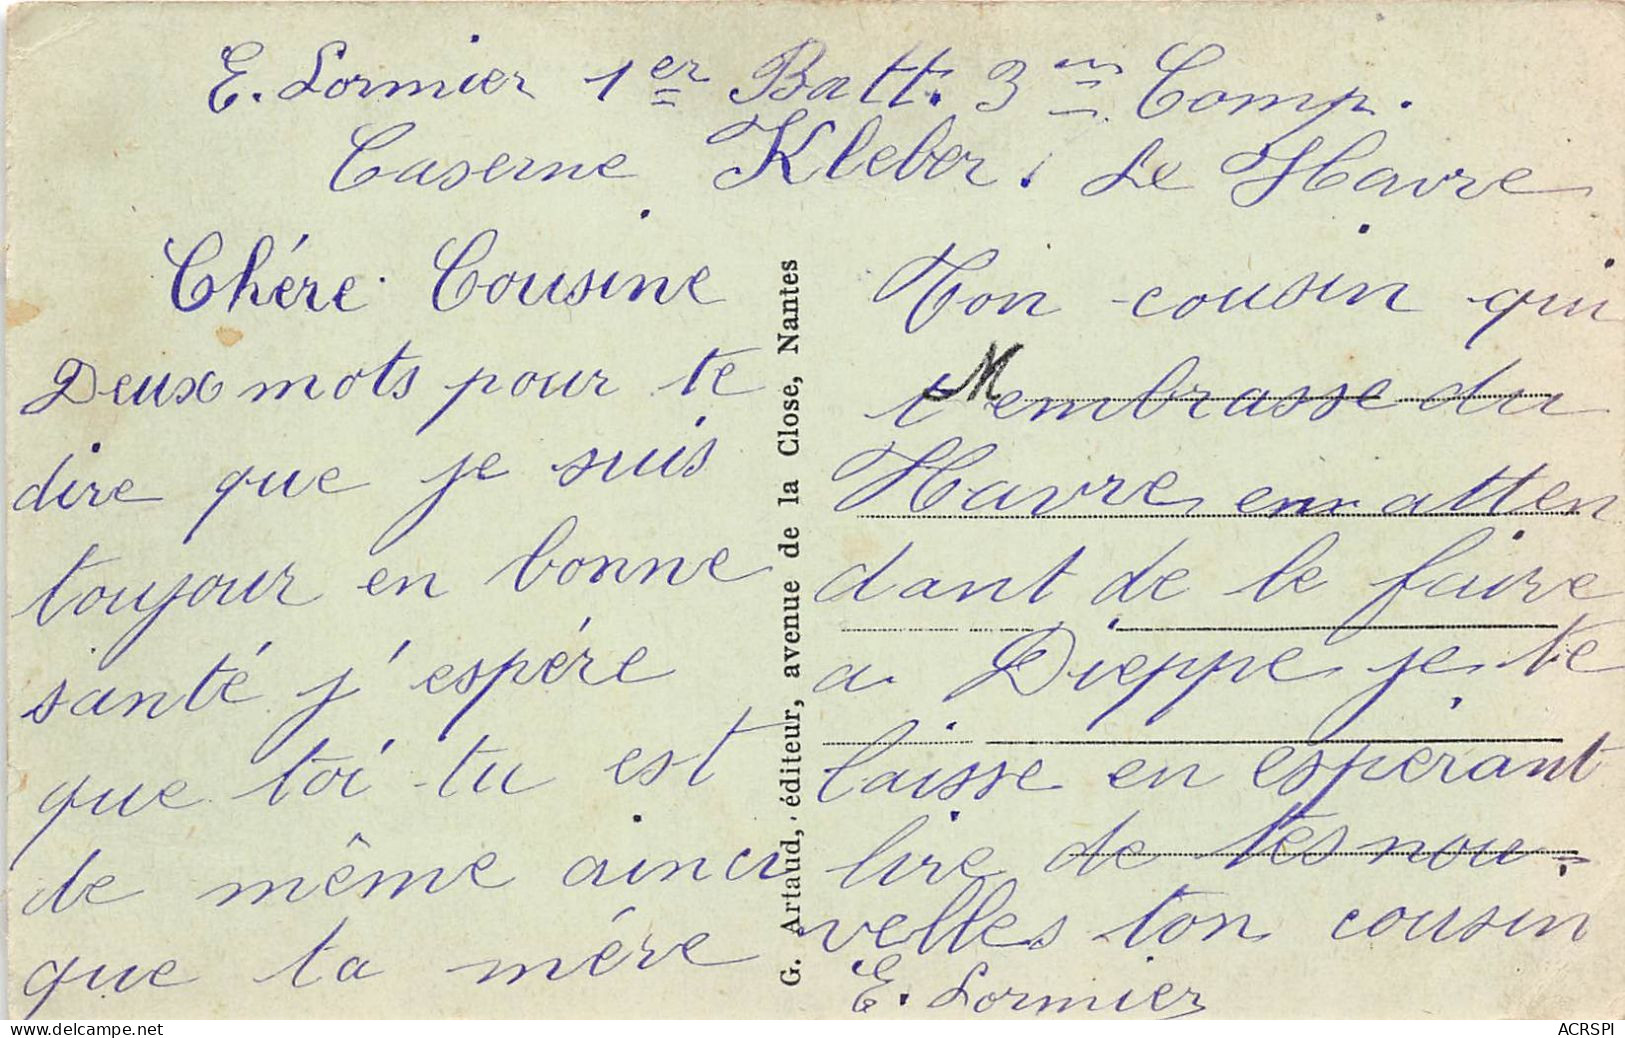 E. Lormier 1er Batt. 3m Comp.
Caserne Kleber. Le Havre
Chére Cousine
Deux mots pour te
dire que je suis
toujour en bonne
santé j'espére
que toi tu est
de même ainci
que ta mére
G. Artaud, éditeur, avenue de la Close, Nantes
Ton cousin qui
M
t'embrasse du
Havre en atten
dant de le faire
a Dieppe je te
laisse en espérant
lire de tes nou-
velles ton cousin
E. Lormier
www.delcampe.net
ACRSPI